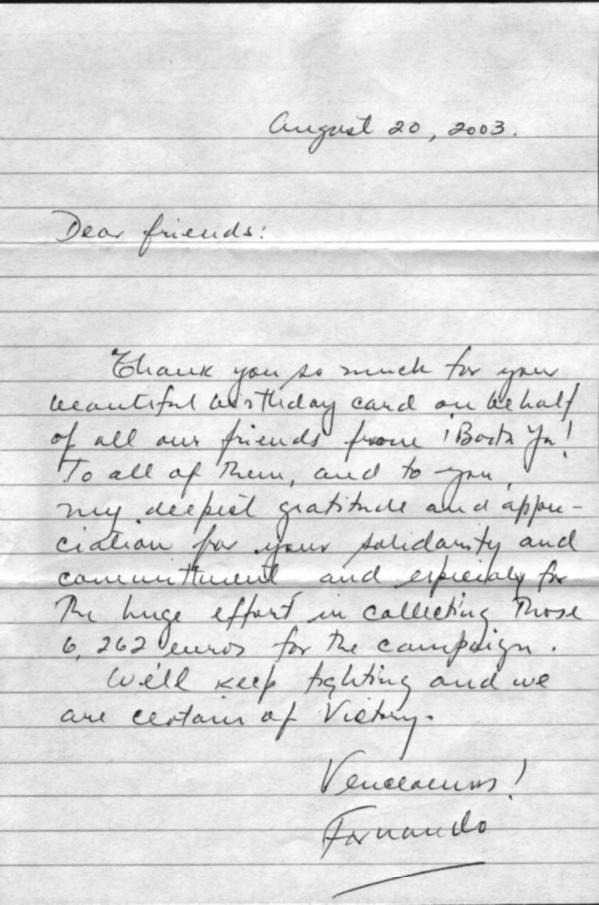 August 20, 2003.
Dear friends:
Thank you so much for your
beautiful birthday card on behalf
of all our friends from ¡Basta Ya!
To all of them, and to you,
my deepest gratitude and appre-
ciation for your solidarity and
committment and especialy for
the huge effort in collecting those
6,262 euros for the campaign.
We'll keep fighting and we
are certain of Victory.
Venceremos!
Fernando